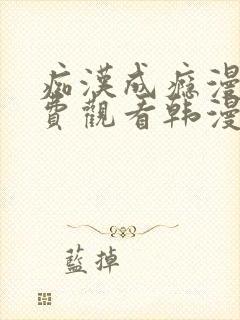 痴漢成癮漫
費觀看韩漫
藍掉